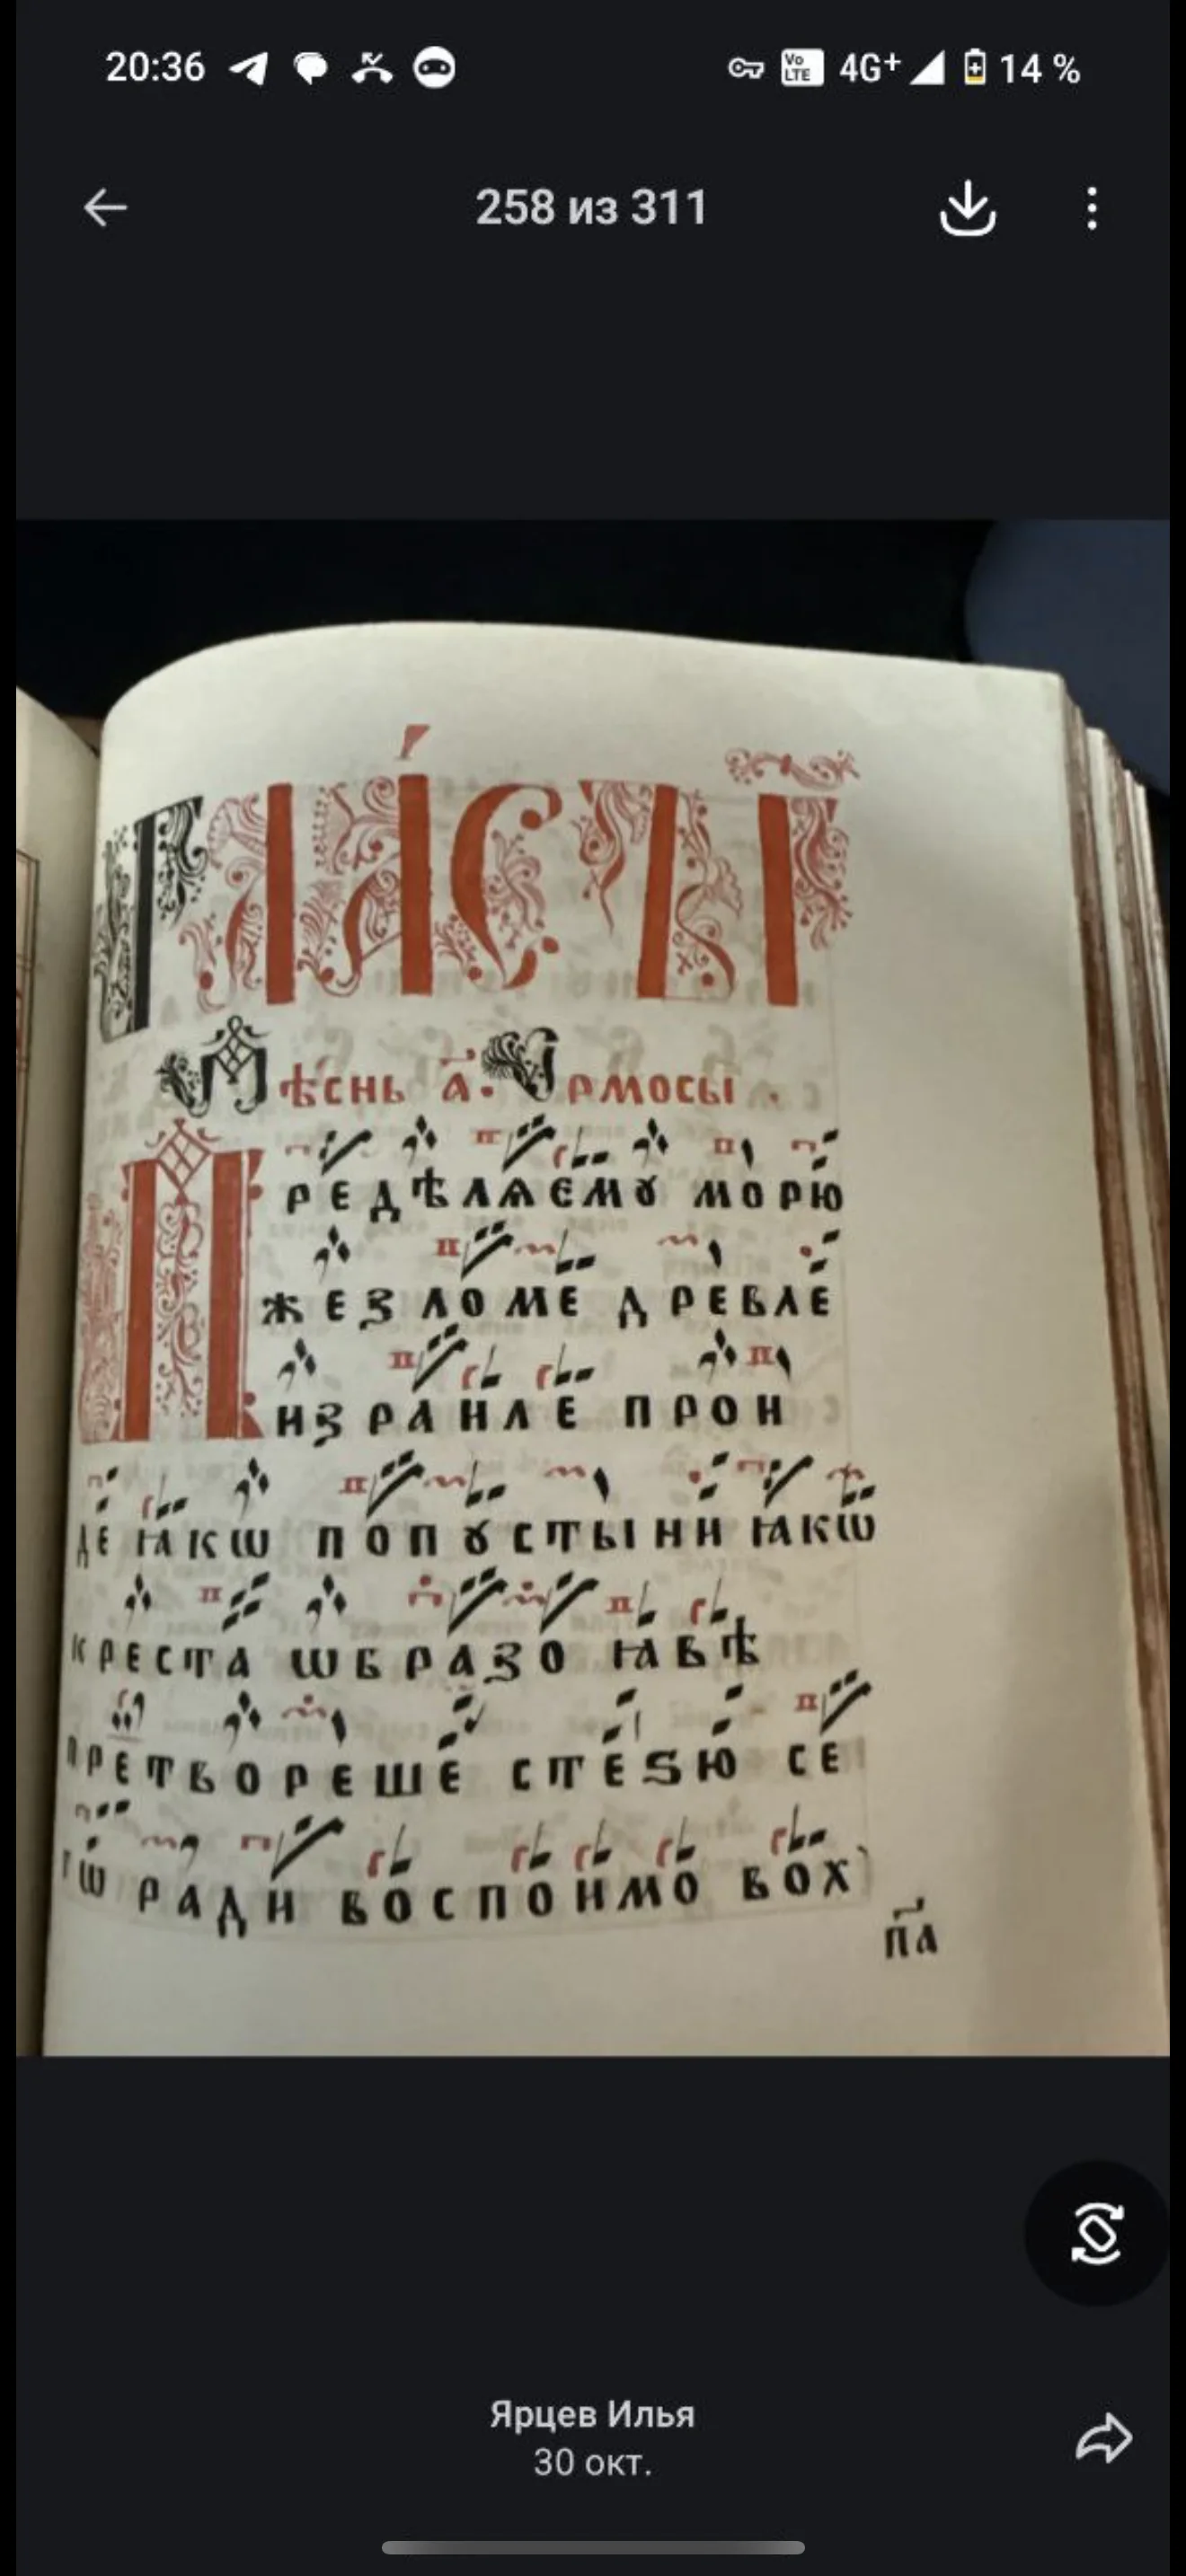 20:36 Vo LTE 4G+ 14 %
258 из 311
Гла́съ і
Пѣснь а҃. Ирмосы.
Предѣлѧемꙋ морю
жезломе древле
изранле прои
де ꙗкѡ попꙋстыни ꙗкѡ
креста ѡбразо ꙗвѣ
претвореше стеѕю се
гѡ ради воспоимо вох
п҃а
Ярцев Илья
30 окт.